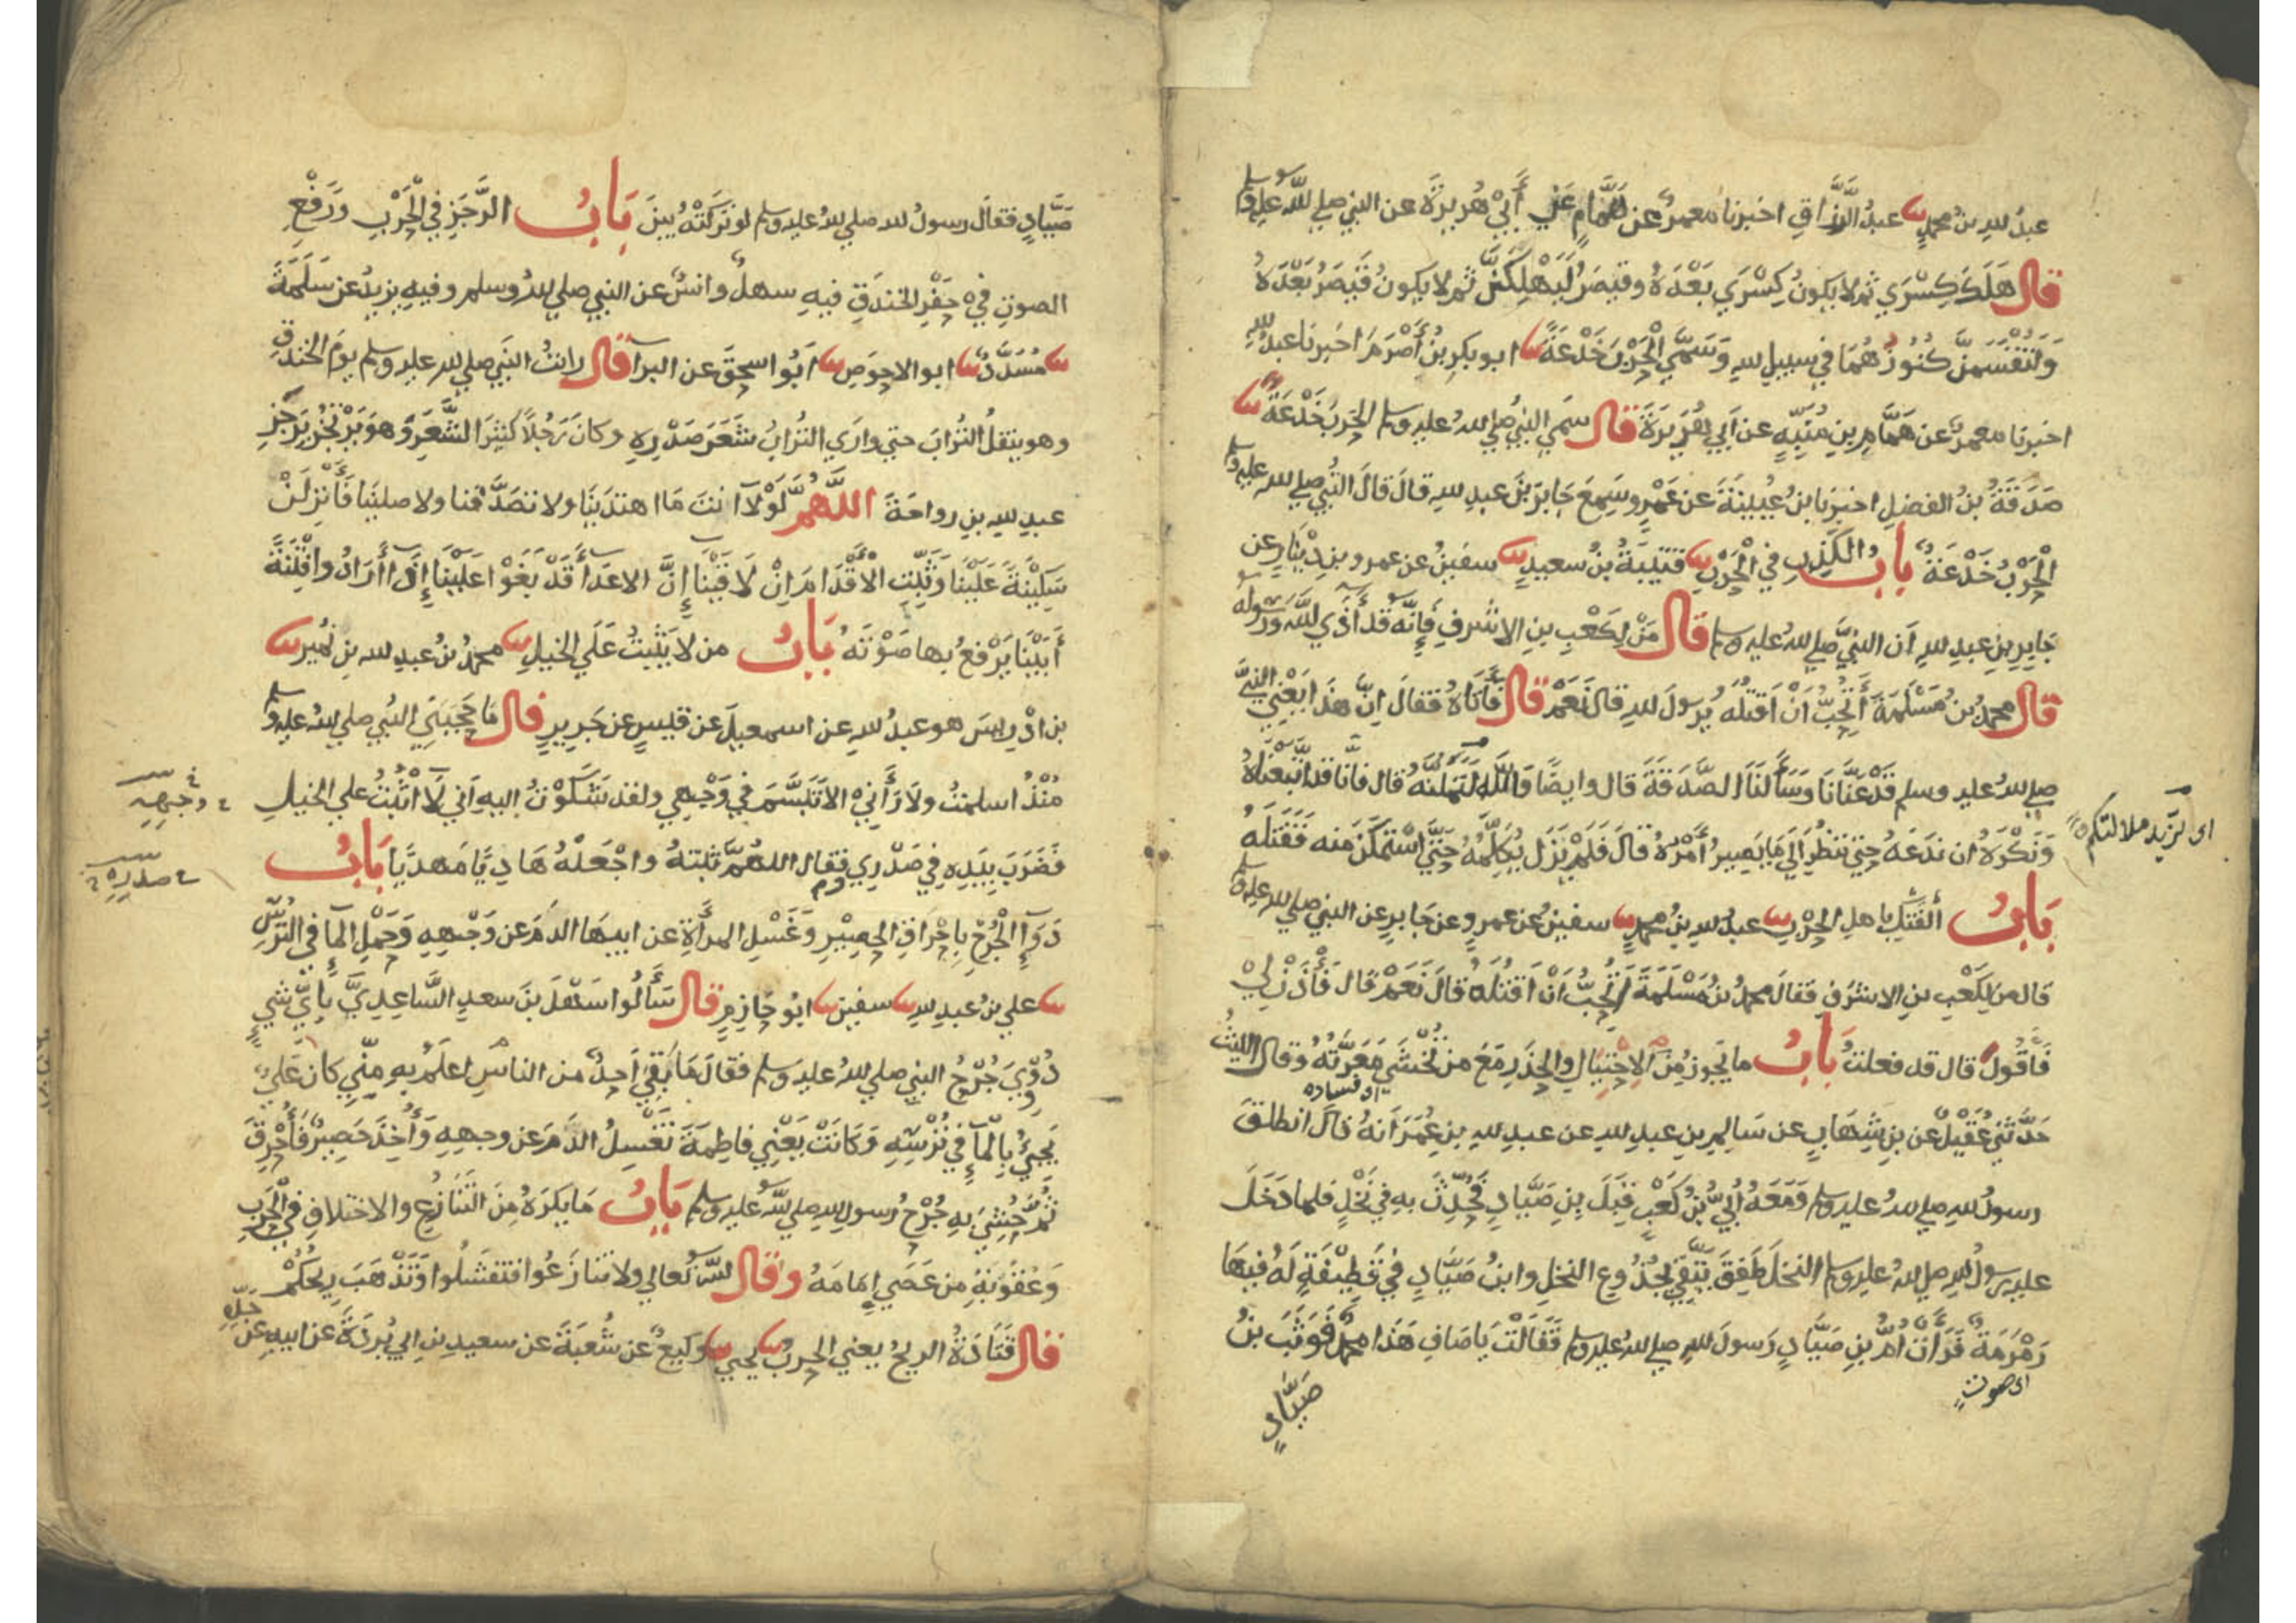 عبدُ للهِ بنُ محمدٍ ثنا عبدُ الرَّزَّاقِ اخبرنا معمرٌ عن هَمَّامٍ عَنْ أَبِي هُرَيرَةَ عن النبي صلي للهُ عليه وسلم
قال هَلَكَ كِسْرَي ثم لا يكونُ كِسْرَي بَعْدَهُ وقيصَرُ لَيَهْلِكَنَّ ثم لا يكونُ قَيصَرُ بَعْدَهُ
وَلَتُقْسَمَنَّ كُنُوزُهُمَا في سبيلِ للهِ وَسَمَّي الْحَرْبَ خَدْعَةً ثنا ابو بكرِ بنُ أَصْرَمَ اخبرنا عبدُ للهِ
اخبرنا معمرٌ عن هَمَّامِ بنِ مُنَبِّهٍ عن أَبي هُرَيرَةَ قال سَمَّي النبيُّ صلي للهُ عليه وسلم الحَربَ خَدْعَةً ثنا
صَدَقَةُ بنُ الفضلِ اخبرَنا بنُ عُيَيْنَةَ عن عَمْرٍو سَمِعَ جَابِرَ بْنَ عبدِ للهِ قالَ قالَ النَّبيُّ صلي للهُ عليه وسلم
الْحَرْبُ خَدْعَةٌ بابُ الكَذِبِ في الْحَرْبِ ثنا قتَيبَةُ بنُ سعيدٍ ثنا سفينُ عن عمرِو بنِ دِيْنَارٍ عن
جَابِرِ بنِ عبدِ للهِ أن النبيَّ صلي للهُ عليه وسلم قال مَنْ لِكَعْبِ بنِ الاشرفِ فَإِنَّه قَد أَذَي للَّهَ وَرَسوله
قال محمدُ بنُ مَسْلَمَةَ أَتُحِبُّ أَنْ أقتلَه يَرسولَ للهِ قال نَعَمْ قال فَأَتَاهُ فقالَ إنَّ هَذَا يَعْنِي النبيَّ
صلي للهُ عليه وسلم قَدْ عَنَّانَا وَسَأَلَنَا الصَّدَقَةَ قال وايضًا وَاللَّهِ لَتَمَلُّنَّهُ قال فانَّا قد اتَّبَعْنَاهُ
اى لتَزيد ملالتكم
وَنكْرَهُ ان نَدَعَهُ حتي ننظُرَ إلَي مَا يَصِيرُ أَمْرُهُ قالَ فَلَمْ يَزَل يُكَلِّمُهُ حَتَّي اسْتَمْكَنَ منه فَقَتَلَهُ
بَابُ الفَتكِ باهلِ الحَرْبِ ثنا عبدُ للهِ بنُ محمدٍ ثنا سفينُ عن عمرٍو عن جَابرٍ عن النبي صلي للهُ عليه وسلم
قال من لِكَعْبِ بنِ الاشرَفِ فقالَ محمدُ بنُ مَسْلَمَةَ أَتُحِبُّ انْ اقتُلَهُ قالَ نَعَمْ قال فَأْذَنْ لِيْ
فَأَقُولَ قال قد فعلتُ بَابُ ما يَجوزُ مِنَ الاِحْتِيَالِ والحَذَرِ مَعَ من تُخْشَي مَعَرَّتُهُ وقال الليثُ
اى فساده
حَدَّثني عُقَيْلٌ عن بنِ شِهَابٍ عن سَالِمِ بنِ عبدِ للهِ عن عبدِ للهِ بنِ عُمَرَ أنهُ قال انطلقَ
رسولُ للهِ صلي للهُ عليه وسلم وَمَعَهُ أُبَيُّ بْنُ كَعْبٍ قِبَلَ بنِ صَيَّادٍ فَحُدِّثَ بهِ في نَخْلٍ فلما دَخَلَ
عليه رسولُ للهِ صلي للهُ عليه وسلم النخلَ طَفِقَ يَتَّقِي بِجُذُوعِ النخلِ وابنُ صَيَّادٍ في قَطِيْفَةٍ لَهُ فيهَا
رَمْرَمَةٌ فَرَأَتْ أُمُّ بنِ صَيَّادٍ رَسولَ للهِ صلي للهُ عليه وسلم فَقَالَتْ يَا صَافِ هَذَا محمدٌ فَوَثَبَ بنُ
اى صوت
صَيَّادٍ
صَيَّادٍ فقال رسولُ للهِ صلي للهُ عليه وسلم لو تَرَكَتْهُ بيَّنَ بَابُ الرَّجَزِ في الْحَرْبِ ورَفْعِ
الصوتِ في حَفْرِ الخندَقِ فيهِ سهلٌ وانسٌ عن النبي صلي للهُ وسلم وفيهِ يزيدُ عن سَلَمَةَ
ثنا مُسَدَّدٌ ثنا ابو الاحوَصِ ثنا أَبُو اسحقَ عن البرآ قال رايتُ النَّبيَ صلي للهُ عليه وسلم يومَ الخندَقِ
وهو ينقلُ التُرابَ حتي وارَي التُرابُ شَعَرَ صَدْرِهِ وكانَ رَجُلاً كثيرَ الشَّعَرِ وهوَ يَرْتَجُز بَرَجَزِ
عبدِ للهِ بنِ رواحَةَ اللَّهُمَّ لَوْلاَ انتَ مَا اهتدَيْنَا ولا تصَدَّقنا ولا صلينَا فَأَنزِلَنْ
سَكِيْنَةً عَلَيْنَا وَثَبِّتِ الأَقْدَامَ اِنْ لَاقَيْنَا إِنَّ الاعَدَا قَدْ بَغَوْا عَلَيْنَا إِذَا أَرَادُوا فِتْنَةً
أَبَيْنَا يَرْفَعُ بها صَوْتَهُ بَابُ من لا يَثْبِتُ عَلَي الخيلِ ثنا محمدُ بنُ عبدِ للهِ بنِ نُمَيرٍ ثنا
بن ادْرِيسَ هو عبدُ للهِ عن اسمعيلَ عن قيسٍ عن جَرِيرٍ قال مَا حَجَبَنِي النَّبي صلي للهُ عليه وسلم
مُنْذُ اسلمتُ ولَا رَأَنِيْ الا تَبَسَّمَ في وَجْهِي ولقد شَكَوْتُ اليهِ أني لَا اثْبُتُ علي الخيلِ
وجهِهِ
فَضَرَبَ بِيَدِهِ في صَدْرِي فقال اللهُمَّ ثَبِّتهُ واجْعَلْهُ هَادِيًا مَهدِيًّا بَابُ
صدرِهِ
دَوَآءِ الْجُرْحِ بِاِحْرَاقِ الحصِيْرِ وَغَسْلِ المرأَةِ عن ابيهَا الدَمَ عن وَجْهِهِ وَحَمْلِ المآءِ في التُرْسِ
ثنا علي بنُ عبدِ للهِ ثنا سفين ثنا ابو حَازِمٍ قال سَأَلُوا سَهْلَ بنَ سعدٍ السَّاعِدِيَّ بِأَيِّ شيءٍ
دُوِّيَ جُرْحُ النبي صلي للهُ عليه وسلم فقالَ مَا بَقِيَ أحدٌ من الناسِ اعلَمُ بهِ مِنِّي كان عَليٌّ
يجيءُ بِالْمآءِ في تُرْسِهِ وَكَانَتْ يَعْنِي فاطِمَةَ تَغْسِلُ الدَمَ عن وجههِ وَأُخِذَ حَصِيرٌ فَأُحْرِقَ
ثُمَّ حُشِيَ بهِ جُرْحُ رسولِ للهِ صلي للهُ عليه وسلم بَابُ مَا يكرَهُ مِنَ التَّنَازُعِ والاختلافِ في الْحَربِ
وَعُقُوْبَةِ من عَصَي إمَامَهُ وقال للَّهُ تعالي ولا تنازَعُوا فتفشَلُوا وَتَذْهَبَ رِيحُكُمْ
قال قَتَادَةُ الريحُ يعني الحربُ ثنا يحيي ثنا وكيعٌ عن شُعبَةَ عن سعيدِ بنِ ابي بُردَةَ عن ابيهِ عن جَدِّهِ